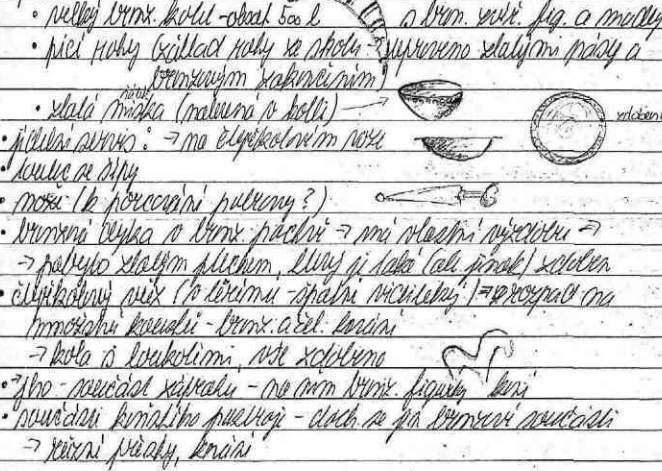 • velký brnz. kotel - obsah 500 l s brn. zvíř. fig. a madly
• picí rohy (základ rohy ze skotu → upraveno zlatými pásy a
bronzovým zakončením)
• zlatá miska (nalezená v kotli) →
zdobení
• jídelní servis: → na čtyřkolovém voze
• toulec se šípy
• nože (k porcování potravy?)
• bronzová dýka v brnz. pochvě → má vlastní výzdobu →
→ pobyto zlatým plechem, který je také (ale jinak) zdoben
• čtyřkolový vůz (v - špatní) → rozpad na
množství kousků - brnz. a žel. kování
→ kola i s loukotěmi, vše zdobeno
• jho - součást zápřahu - na něm brnz. figurky koní
• součásti koňského postroje - doch. se jen bronzové součásti
→ různé přezky, kování